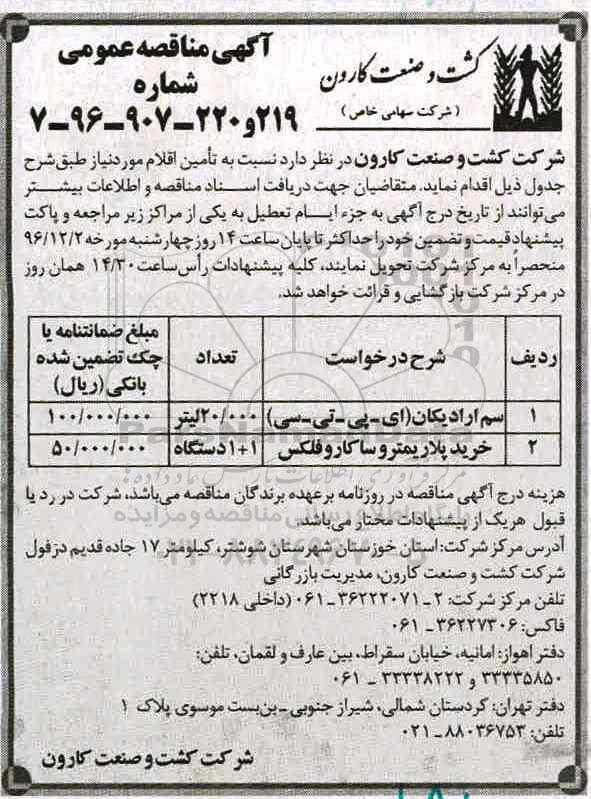 آگهی مناقصه عمومی
شماره
۲۱۹و۲۲۰-۹۰۷-۹۶-۷
کشت و صنعت کارون
( شرکت سهامی خاص )
شرکت کشت و صنعت کارون در نظر دارد نسبت به تأمین اقلام موردنیاز طبق شرح
جدول ذیل اقدام نماید. متقاضیان جهت دریافت اسناد مناقصه و اطلاعات بیشتر
می‌توانند از تاریخ درج آگهی به جزء ایام تعطیل به یکی از مراکز زیر مراجعه و پاکت
پیشنهاد قیمت و تضمین خود را حداکثر تا پایان ساعت ۱۴ روز چهارشنبه مورخه ۹۶/۱۲/۲
منحصراً به مرکز شرکت تحویل نمایند، کلیه پیشنهادات رأس ساعت ۱۴/۳۰ همان روز
در مرکز شرکت بازگشایی و قرائت خواهد شد.
ردیف شرح درخواست تعداد مبلغ ضمانتنامه یا
چک تضمین شده
بانکی (ریال)
۱ سم ارادیکان(ای-پی-تی-سی) ۲۰/۰۰۰لیتر ۱۰۰/۰۰۰/۰۰۰
۲ خرید پلاریمتر و ساکاروفلکس ۱+۱دستگاه ۵۰/۰۰۰/۰۰۰
هزینه درج آگهی مناقصه در روزنامه برعهده برندگان مناقصه می‌باشد، شرکت در رد یا
قبول هریک از پیشنهادات مختار می‌باشد.
آدرس مرکز شرکت: استان خوزستان شهرستان شوشتر، کیلومتر ۱۷ جاده قدیم دزفول
شرکت کشت و صنعت کارون، مدیریت بازرگانی
تلفن مرکز شرکت: ۲-۳۶۲۲۲۰۷۱-۰۶۱ (داخلی ۲۲۱۸)
فاکس: ۳۶۲۲۷۳۰۶-۰۶۱
دفتر اهواز: امانیه، خیابان سقراط، بین عارف و لقمان، تلفن:
۳۳۳۳۵۸۵۰ و ۳۳۳۳۸۲۲۲-۰۶۱
دفتر تهران: کردستان شمالی، شیراز جنوبی-بن‌بست موسوی پلاک ۱
تلفن: ۸۸۰۳۶۷۵۳-۰۲۱
شرکت کشت و صنعت کارون